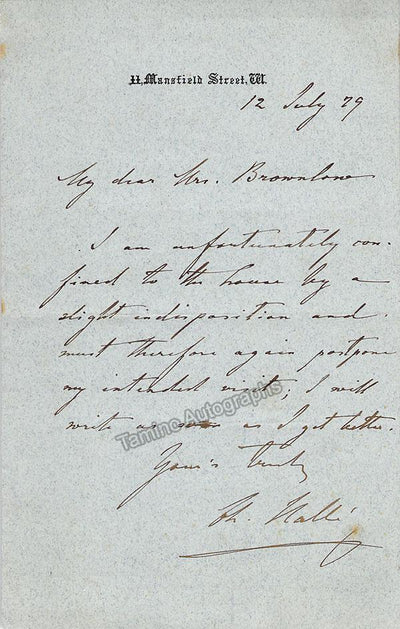 11, Mansfield Street, W.
12 July 79
My dear Mrs. Brownlow
I am unfortunately con-
fined to the house by a
slight indisposition and
must therefore again postpone
my intended visit; I will
write as soon as I get better.
Tamino Autographs
Yours truly
Ch. Hallé